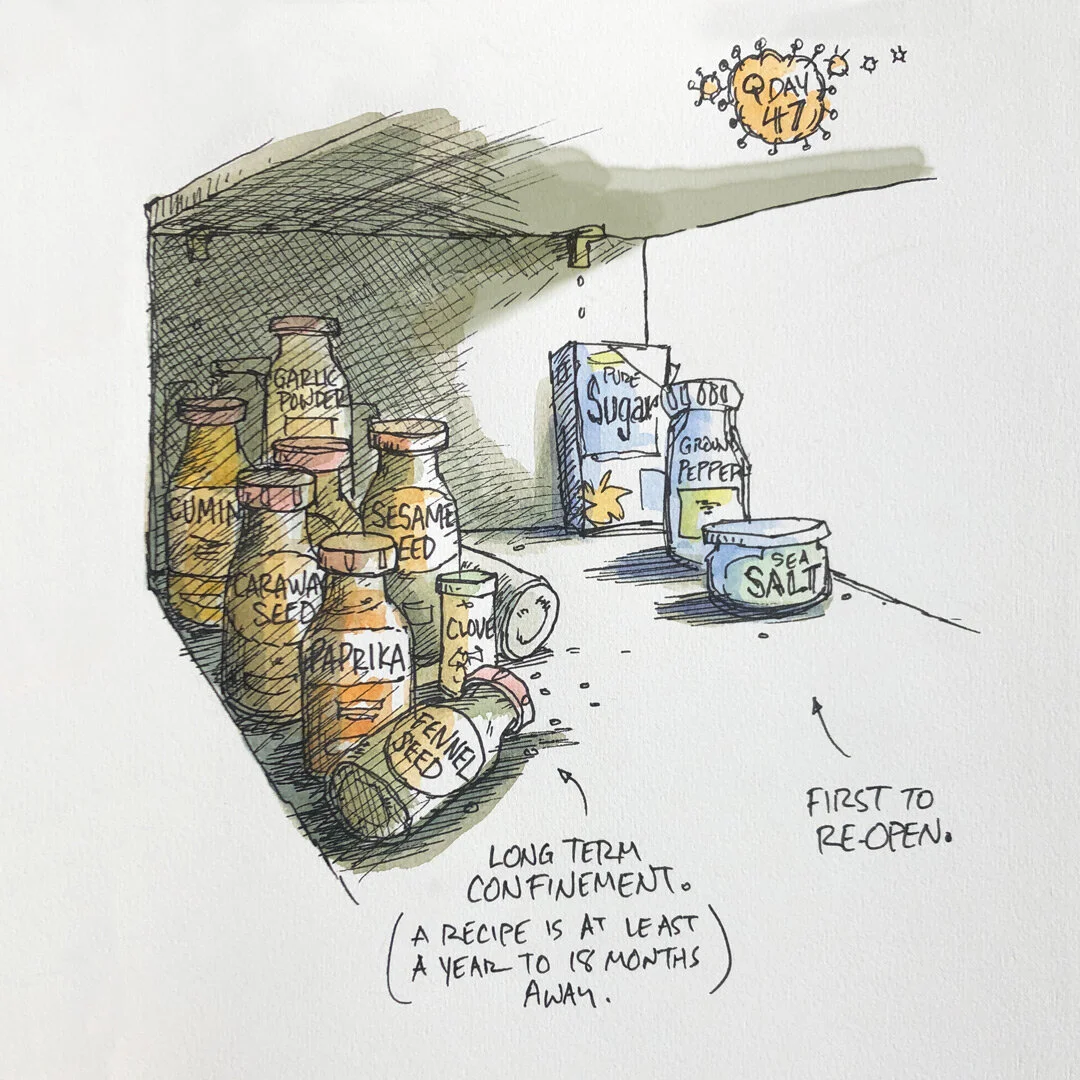 Q DAY
47
GARLIC
POWDER
PURE
Sugar
GROUND
PEPPER
CUMIN
SESAME
SEED
SEA
SALT
CARAWAY
SEED
CLOVE
PAPRIKA
FENNEL
SEED
FIRST TO
RE-OPEN.
LONG TERM
CONFINEMENT.
(A RECIPE IS AT LEAST
A YEAR TO 18 MONTHS
AWAY.)